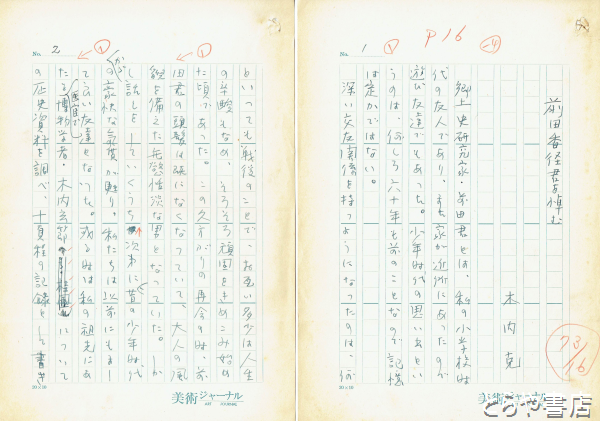 No. 1
P16
前田香径君を悼む
木内 克
郷土史研究家・前田君とは、私の小学校時
代の友人であり、また家が近所にあったので
遊び友達でもあった。少年時代の思い出とい
うのは、何しろ六十年も前のことなので記憶
は定かではない。
深い交友関係を持つようになったのは、何
73/16
20×10
美術ジャーナル
ART JOURNAL
No. 2
といっても戦後のことで、お互い多少は人生
の年輪も
そろそろ頑固をきめこみ始め
た頃であった。この久方ぶりの再会の時、前
田君の頭髪は既になくなっていて、大人の風
貌を備えた無慾恬淡な男となっていた。しか
し話しをしていくうち次第に昔の少年時代
の
気質が甦り、私たちは以前にもまし
て良い友達となった。或る時は私の祖先にあ
たる博物学者・木内玄節
について
の歴史資料を調べ、十頁程の記録として書き
20×10
美術ジャーナル
ART JOURNAL
とらや書店